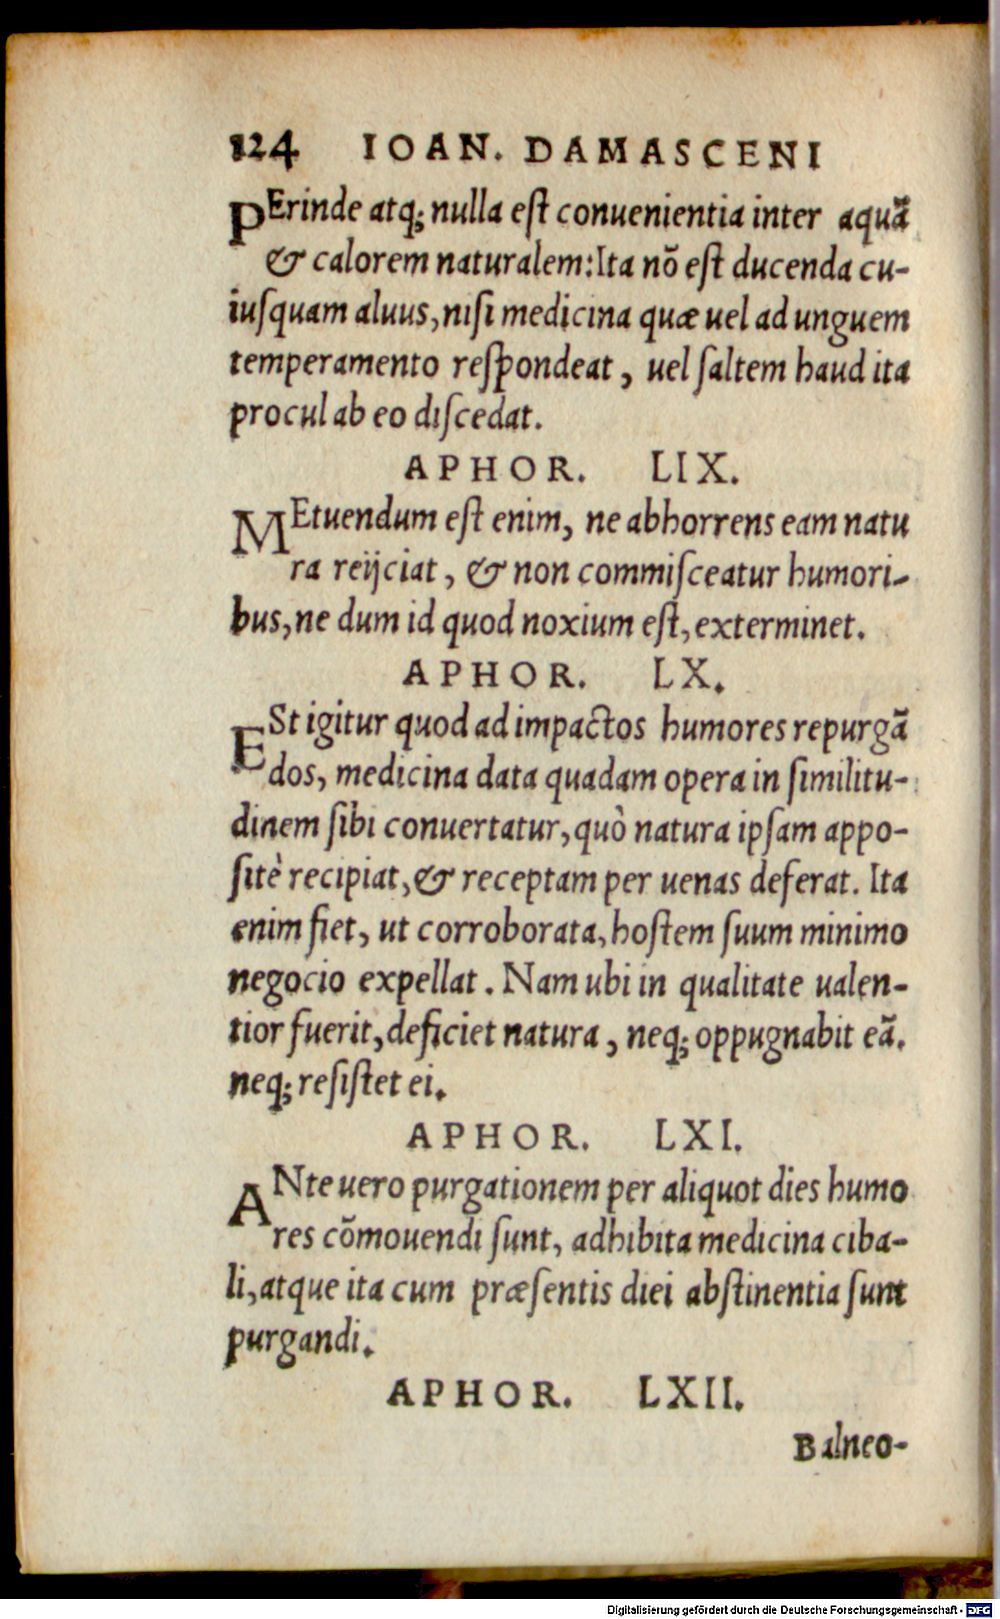 124 IOAN. DAMASCENI
PErinde atq; nulla est conuenientia inter aquā
& calorem naturalem: Ita nō est ducenda cu-
iusquam aluus, nisi medicina quæ uel ad unguem
temperamento respondeat, uel saltem haud ita
procul ab eo discedat.
APHOR. LIX.
MEtuendum est enim, ne abhorrens eam natu
ra reijciat, & non commisceatur humori-
bus, ne dum id quod noxium est, exterminet.
APHOR. LX.
ESt igitur quod ad impactos humores repurgā
dos, medicina data quadam opera in similitu-
dinem sibi conuertatur, quò natura ipsam appo-
sitè recipiat, & receptam per uenas deferat. Ita
enim fiet, ut corroborata, hostem suum minimo
negocio expellat. Nam ubi in qualitate ualen-
tior fuerit, deficiet natura, neq; oppugnabit eā.
neq; resistet ei.
APHOR. LXI.
ANte uero purgationem per aliquot dies humo
res cōmouendi sunt, adhibita medicina ciba-
li, atque ita cum præsentis diei abstinentia sunt
purgandi.
APHOR. LXII.
Balneo-
Digitalisierung gefördert durch die Deutsche Forschungsgemeinschaft - DFG